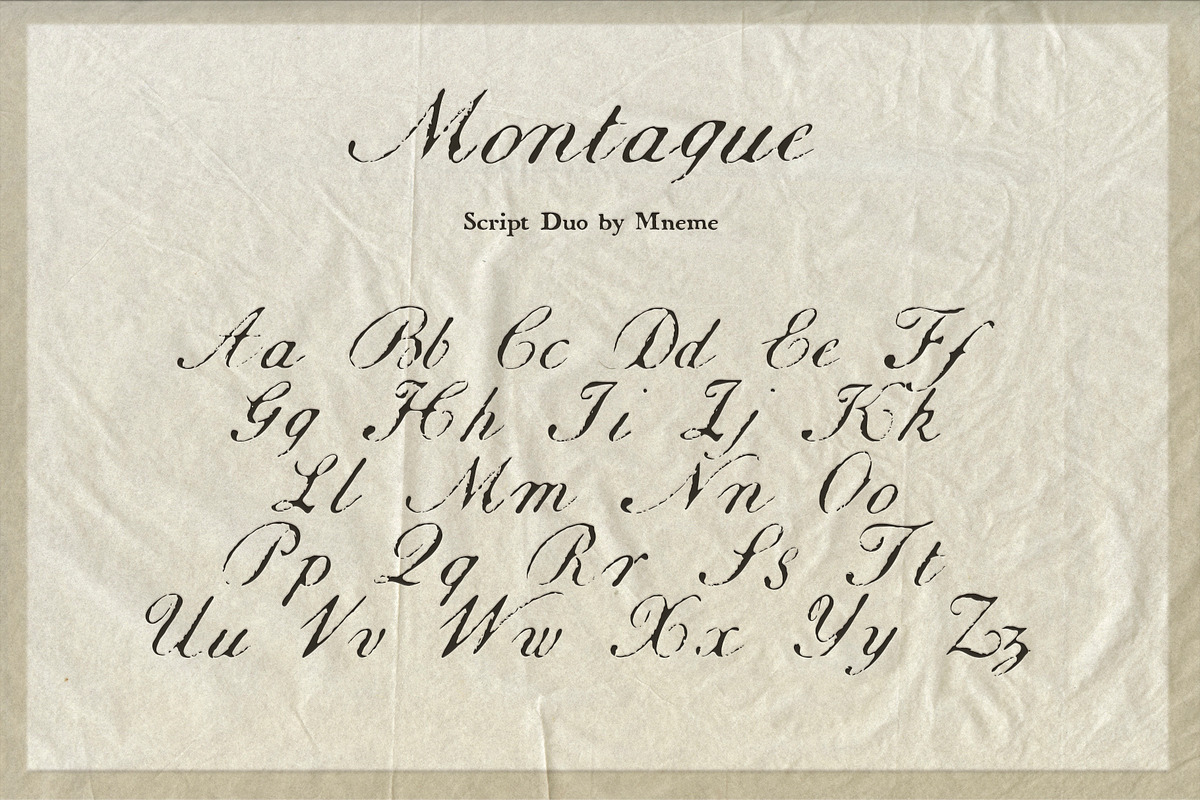 Montague
Script Duo by Mneme
Aa Bb Cc Dd Ee Ff
Gg Hh Ii Jj Kk
Ll Mm Nn Oo
Pp Qq Rr Ss Tt
Uu Vv Ww Xx Yy Zz